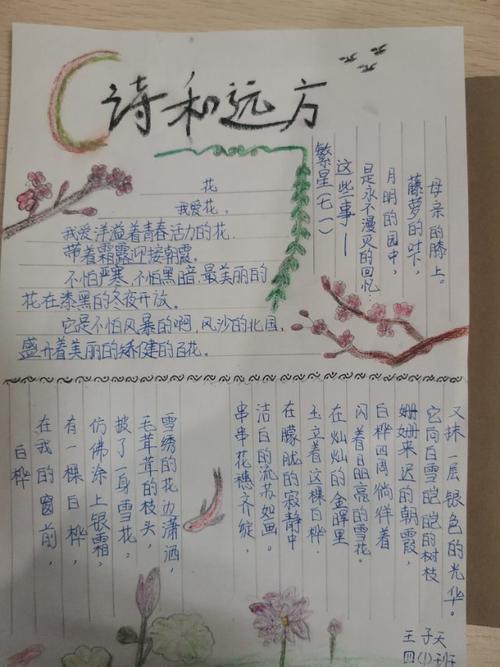 诗和远方
花
我爱花,
我爱洋溢着青春活力的花.
带着霜露迎接朝霞.
不怕严寒、不怕黑暗.最美丽的
花在漆黑的冬夜开放.
它是不怕风暴的啊,风沙的北国,
盛开着美丽的矫健的百花.
繁星(七一)
这些事——
是永不漫灭的回忆:
月明的园中,
藤萝的叶下,
母亲的膝上。
白桦
在我的窗前,
有一棵白桦,
仿佛涂上银霜,
披了一身雪花。
毛茸茸的枝头,
雪绣的花边潇洒,
串串花穗齐绽,
洁白的流苏如画。
在朦胧的寂静中
玉立着这棵白桦.
在灿灿的金晖里
闪着晶亮的雪花。
白桦四周徜徉着
姗姗来迟的朝霞,
它向白雪皑皑的树枝
又抹一层银色的光华。
王子天
四(1)班